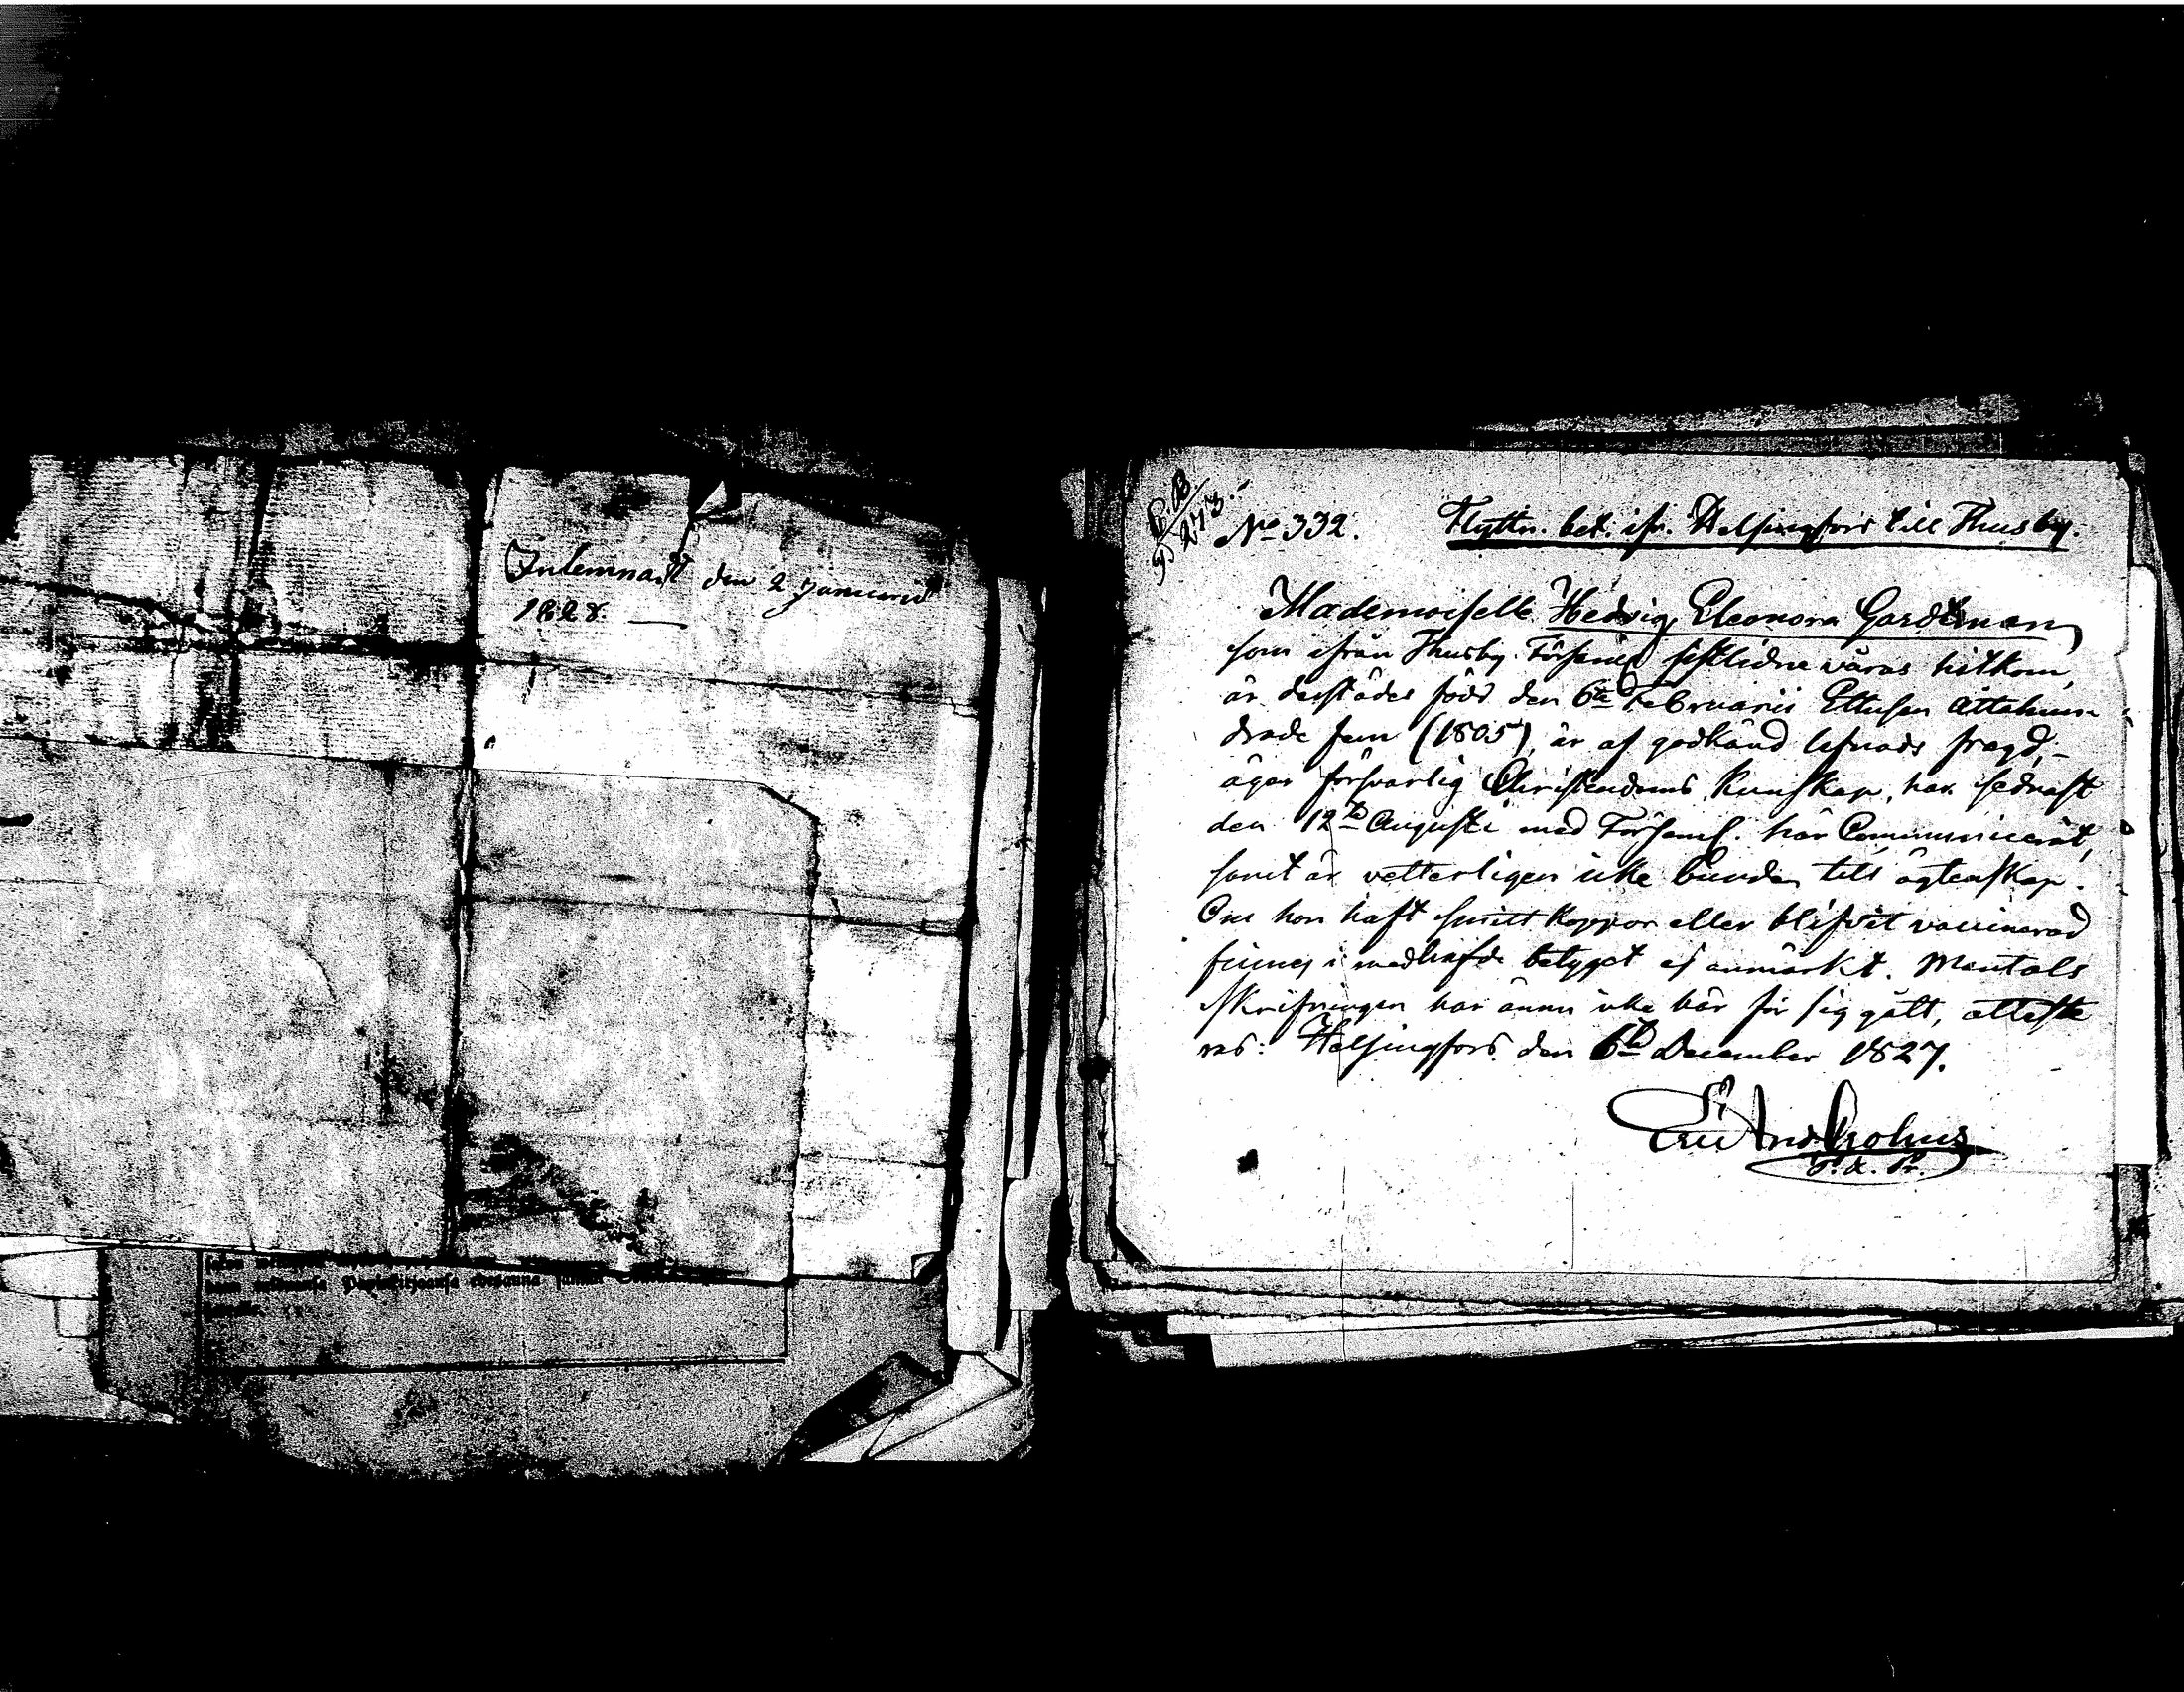 Inlemnadt den 2 Januarii
1828.
P. B.
p 273.
No 332.
Flyttn. bet. ifr. Helsingfors till Thusby.
Mademoiselle Hedvig Eleonora Gardtman,
som ifrån Thusby Församl sistlidne våras hitkom,
är derstädes född den 6te Februarii Ettusen åttahun-
drade fem (1805), är af godkänd lefnads fragd,
äger försvarlig Christendoms kunskap, har sednast
den 12te Augusti med Församl. här Communicerat,
samt är vetterligen icke bunden till ägtenskap.
Om hon haft smitt koppor eller blifvit vaccinerad
finnes i medhafde betyget ej anmärkt. Mantals
skrifningen har ännu icke här för sig gått, atteste
ras: Helsingfors den 6te December 1827.
Eric And Crohns